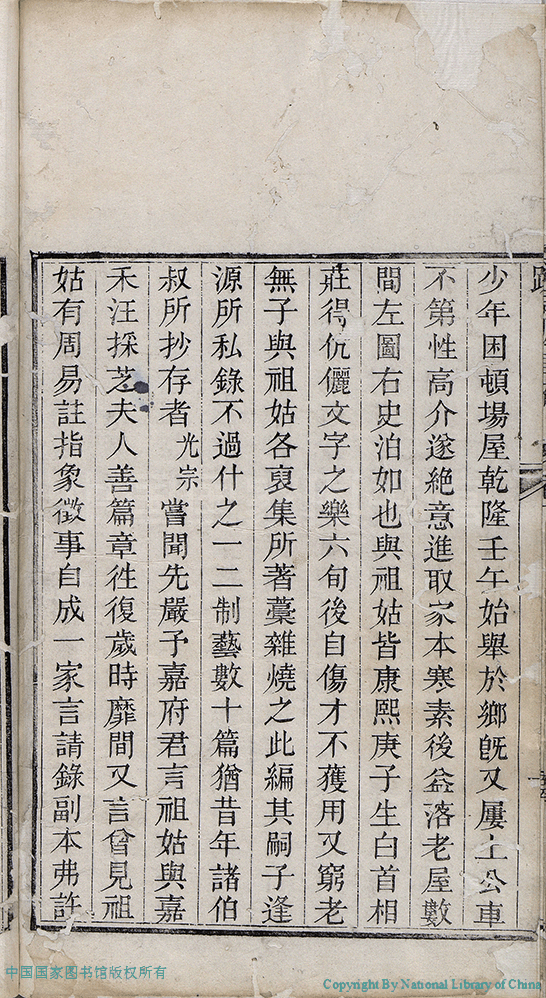 少年困頓場屋乾隆壬午始舉於鄉旣又屢上公車
不第性高介遂絶意進取家本寒素後益落老屋數
間左圖右史泊如也與祖姑皆康熙庚子生白首相
莊得伉儷文字之樂六旬後自傷才不獲用又窮老
無子與祖姑各裒集所著藁雜燒之此編其嗣子逢
源所私錄不過什之一二制藝數十篇猶昔年諸伯
叔所抄存者光宗嘗聞先嚴予嘉府君言祖姑與嘉
禾汪採芝夫人善篇章徃復歲時靡間又言曾見祖
姑有周易註指象徵事自成一家言請錄副本弗許
中国国家图书馆版权所有
Copyright By National Library of China